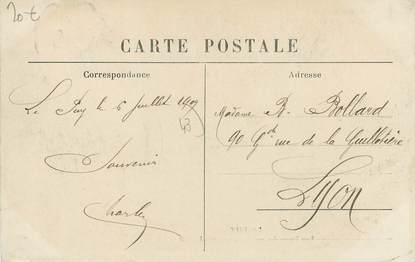 20-€
CARTE POSTALE
Correspondance
Le Puy le 6 Juillet 1909
Souvenir
Charles
Adresse
Madame B. Bollard
90 Gde rue de la Guillotière
Lyon